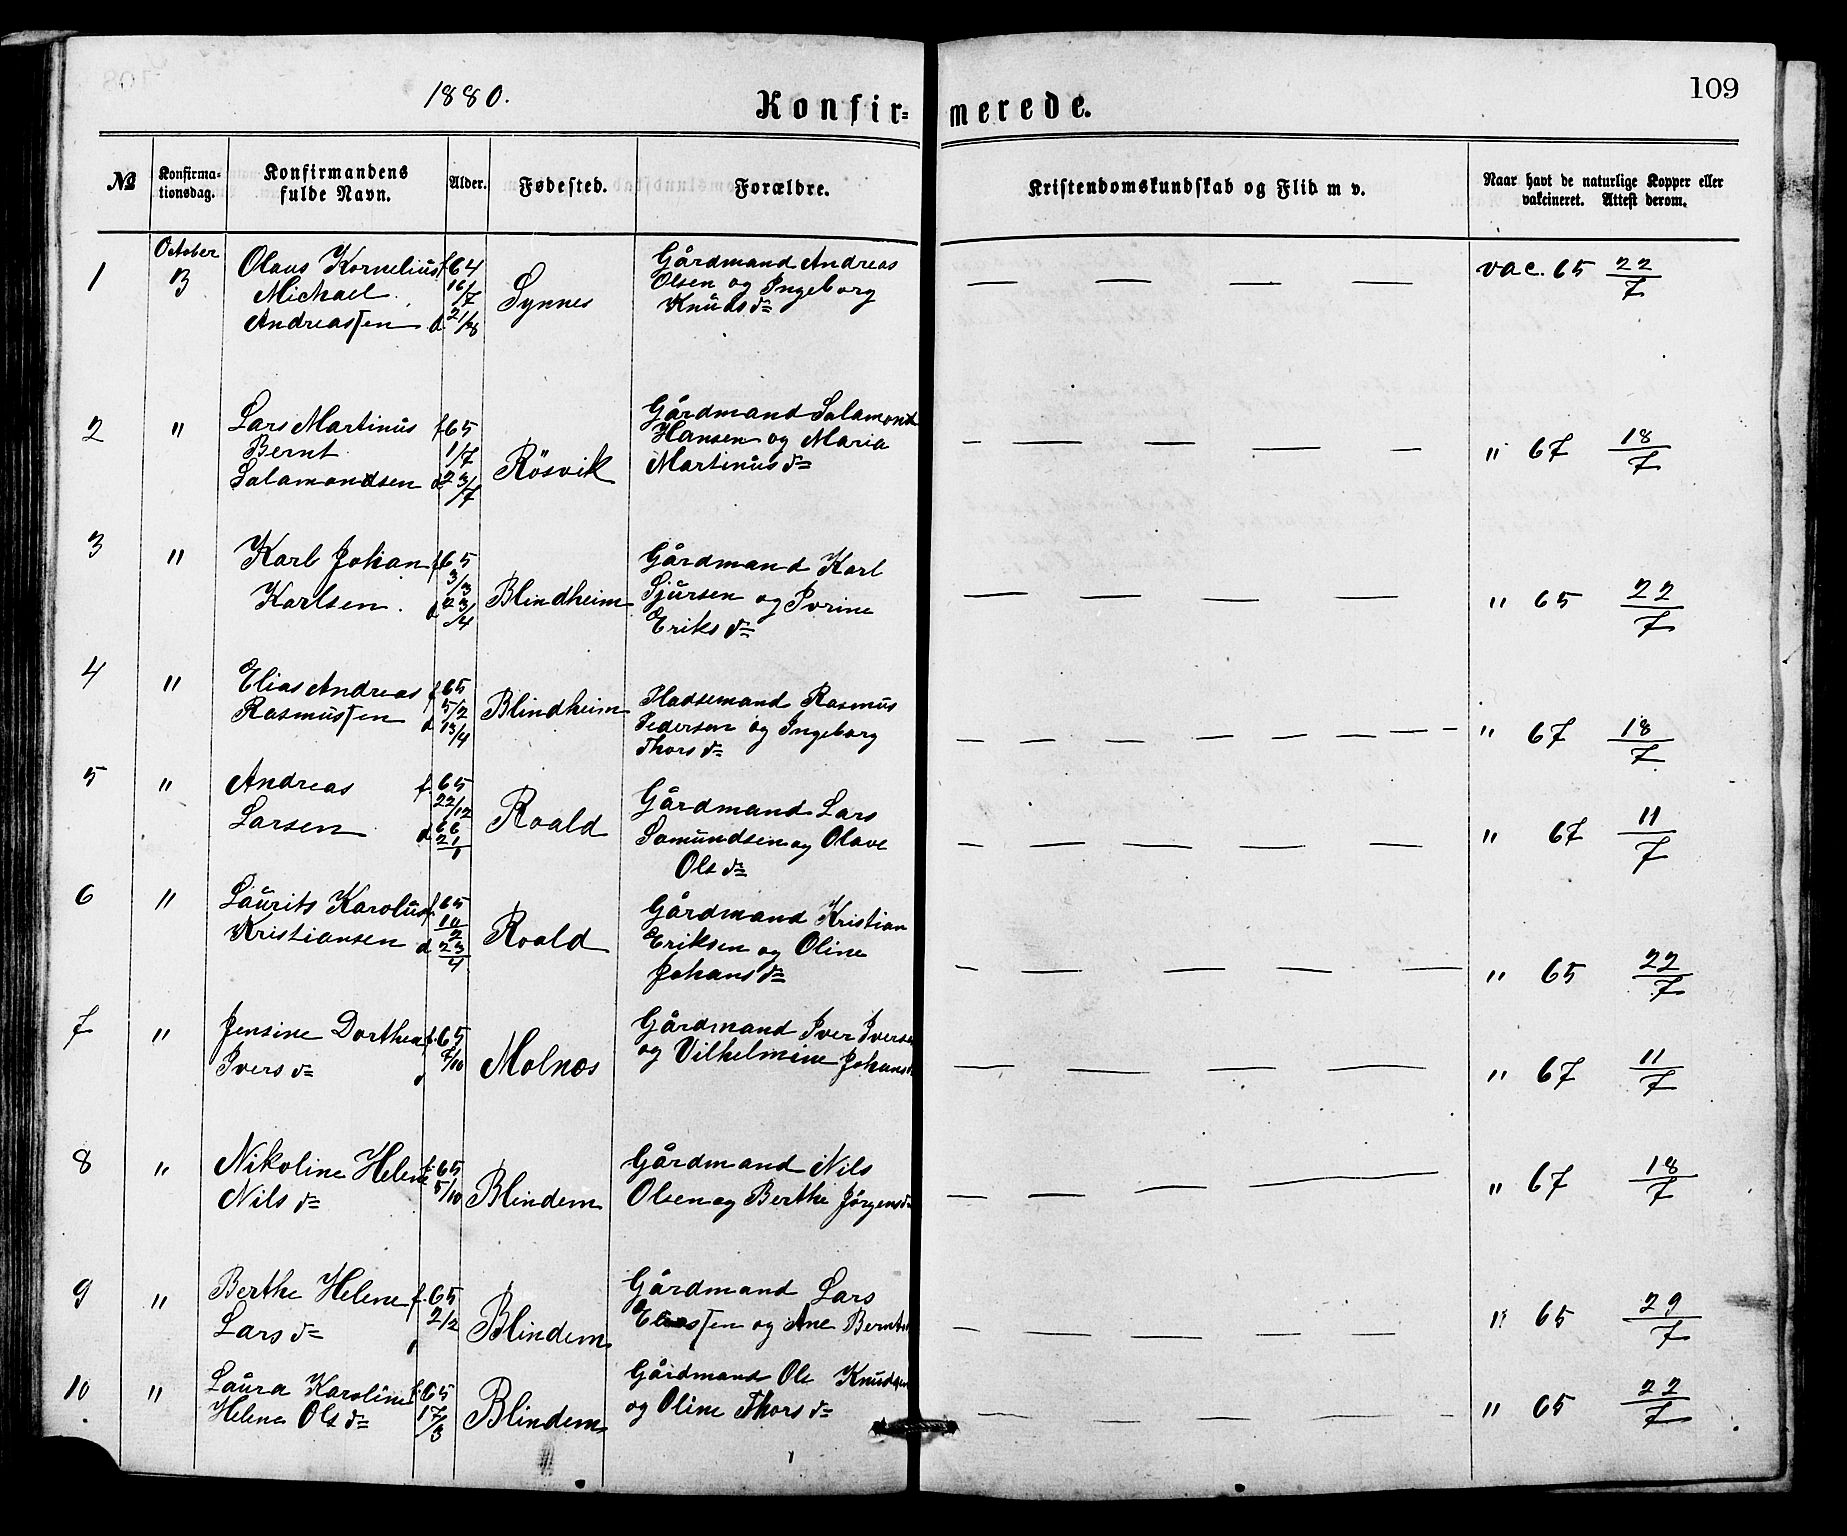 1880.
Konfir= merede.
109
№
Konfirma-
tionsdag.
Konfirmandens
fulde Navn.
Alder.
Fødested.
Forældre.
Kristendomskundskab og Flid m v.
Naar havt de naturlige Kopper eller
vakcineret. Attest derom.
1 October
B
Olaus Kornelius
Michael
Andreassen
f 64
16/7
d. 21/8
Synnes
Gårdmand Andreas
Olsen og Ingeborg
Knuds d=
— — — —
vac. 65 22/7
2 "
Lars Martinus
Bernt
Salamondsen
f 65
1/7
d 23/7
Rösvik
Gårdmand Salamond
Hansen og Maria
Martinus d=
— — — — —
" 67 18/7
3 "
Karl Johan
Karlsen.
f 65
3/3
d 23/4
Blindheim
Gårdmand Karl
Sjursen og Ivrine
Eriks d=
— — — —
" 65 22/7
4 "
Elias Andreas
Rasmussen
f 65
5/2
d 13/4
Blindheim
Pladsemand Rasmus
Pedersen og Ingeborg
Thors d=
— — — — — — — — —
" 67 18/7
5 "
Andreas
Larsen
f. 65
22/12
d 66
21/1
Roald
Gårdmand Lars
Samundsen og Olave
Ols d=
— — — — —
" 67 11/7
6 "
Laurits Karolus
Kristiansen
f. 65
10/2
d 23/4
Roald
Gårdmand Kristian
Eriksen og Oline
Johans d=
— — — — —
" 65 22/7
7 "
Jensine Dorthea
Ivers d=
f. 65
7/10
Molnes
Gårdmand Iver Iversen
og Vilhelmine Johans
— — — —
" 67 11/7
8 "
Nikoline Helene
Nils d=
f. 65
5/10
Blindem
Gårdmand Nils
Olsen og Berthe Jørgens d=
— — — —
" 67 18/7
9 "
Berthe Helene
Lars d=
f. 65
2/2
Blindem
Gårdmand Lars
Eliassen og Ane Bernt
— — — — —
" 65 29/7
10 "
Laura Karoline
Helene Ols d=
f. 65
17/3
Blindem
Gårdmand Ole Knudsen
og Oline Thors d=
— — — — —
" 65 22/7